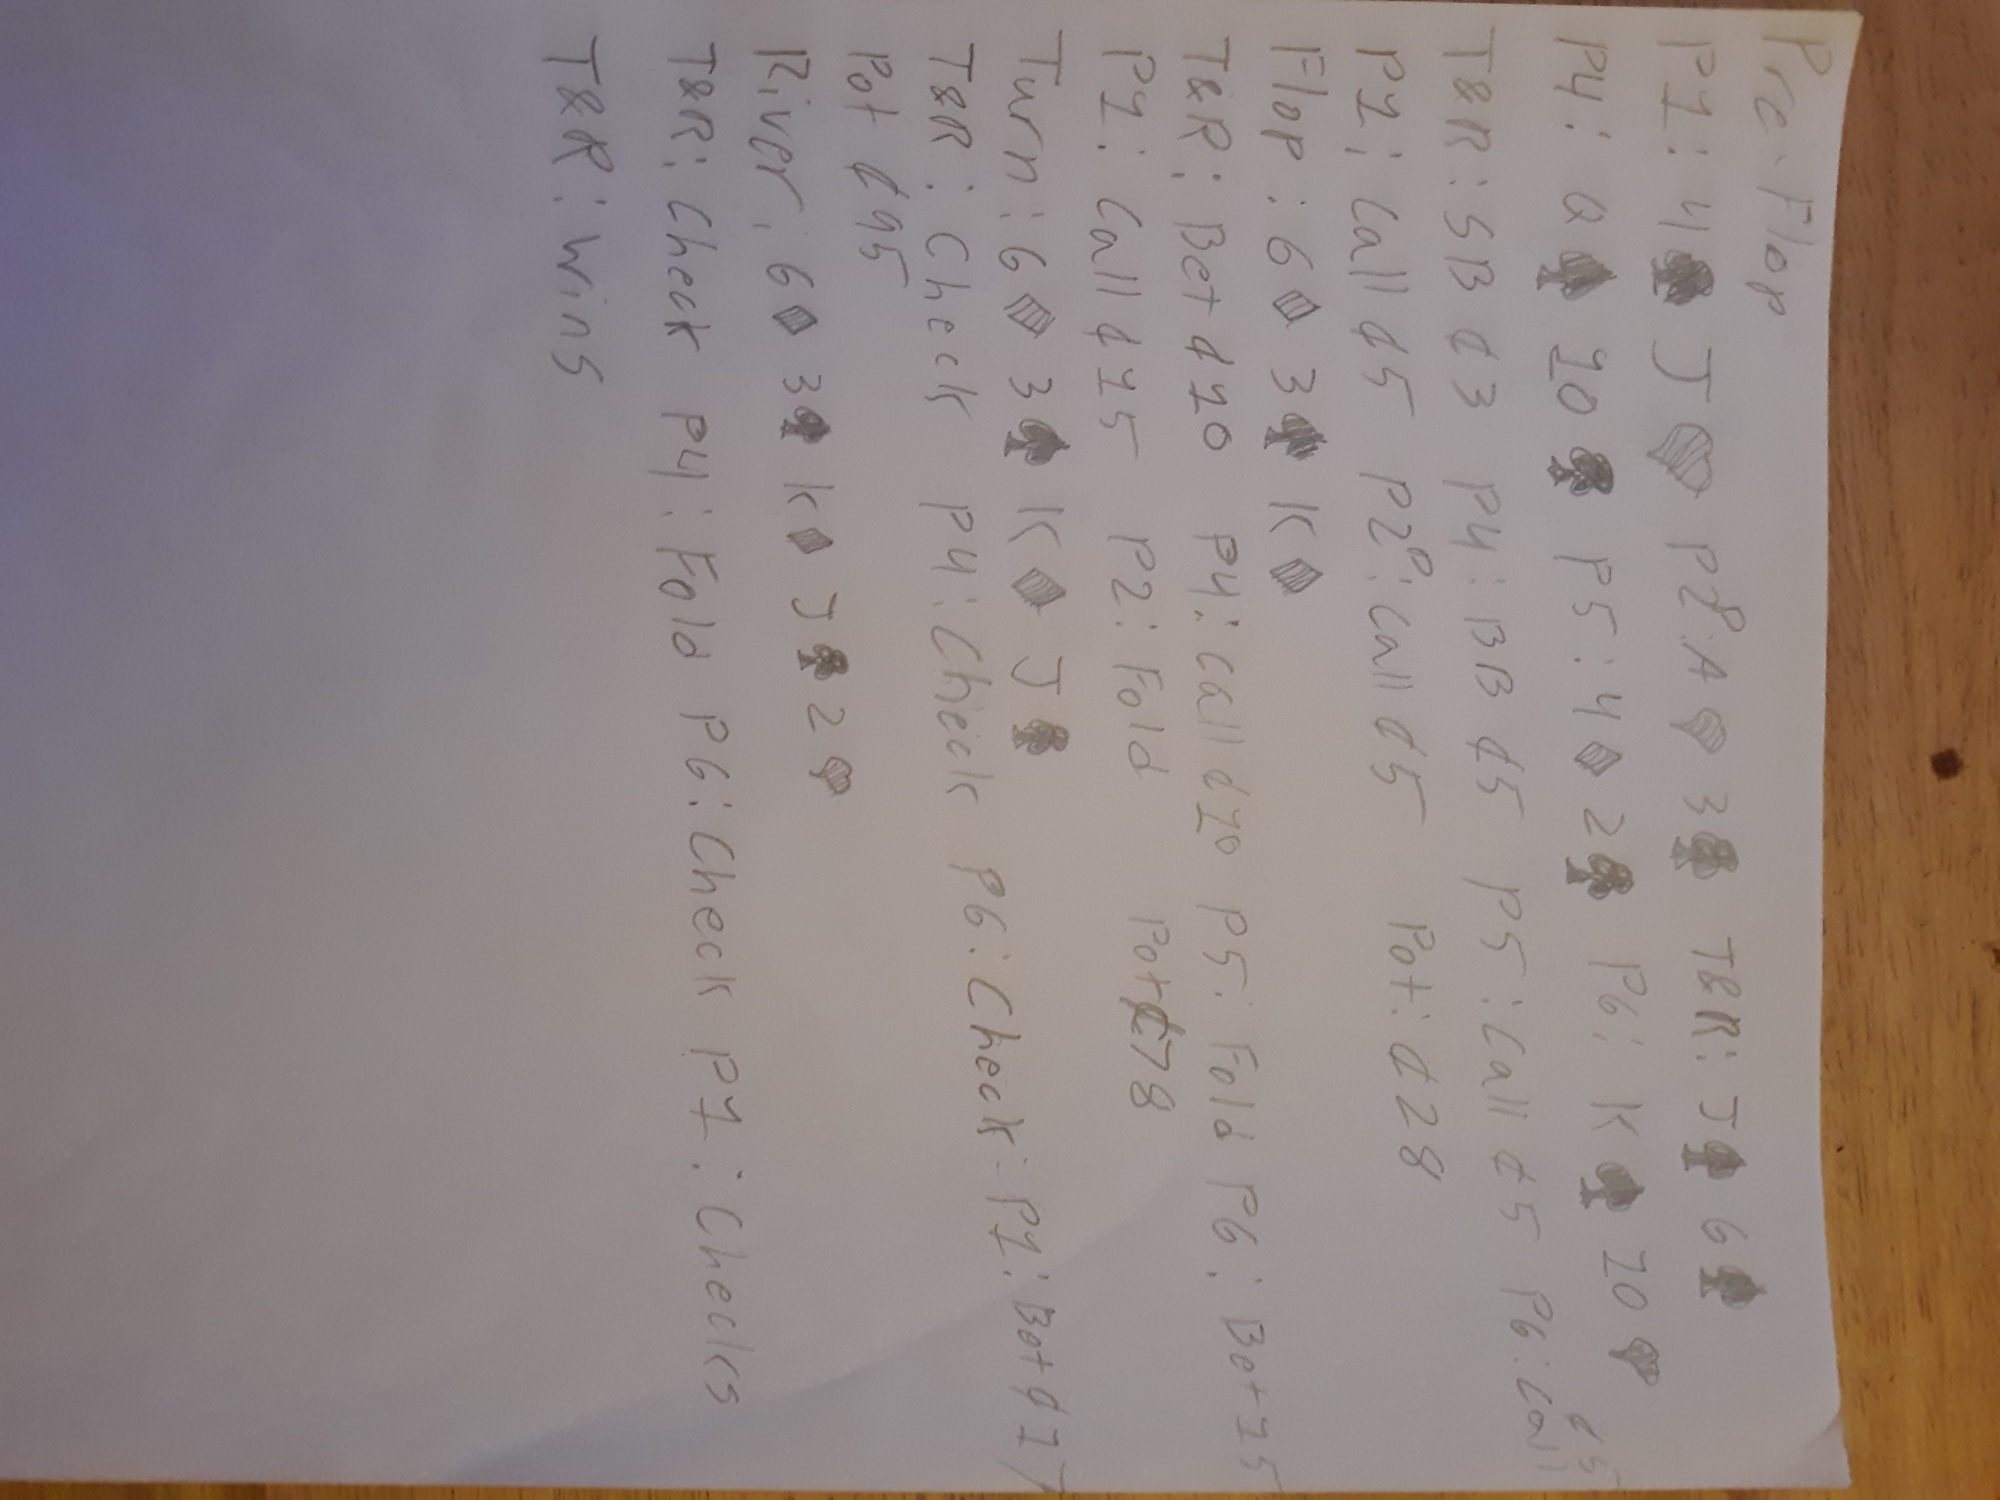 Pre-Flop
P1: 4♣ J♥ P2: A♥ 3♣ T&R: J♠ 6♠
P4: Q♠ 10♣ P5: 4♦ 2♣ P6: K♠ 10♥
T&R: SB ¢3 P4: BB ¢5 P5: Call ¢5 P6: Call ¢5
P1: Call ¢5 P2: Call ¢5 Pot: ¢28
Flop: 6♦ 3♠ K♦
T&R: Bet ¢10 P4: Call ¢10 P5: Fold P6: Bet 15
P1: Call ¢15 P2: Fold Pot ¢78
Turn: 6♦ 3♠ K♦ J♣
T&R: Check P4: Check P6: Check P1: Bet ¢17
Pot ¢95
River: 6♦ 3♠ K♦ J♣ 2♥
T&R: Check P4: Fold P6: Check P1: Checks
T&R: Wins